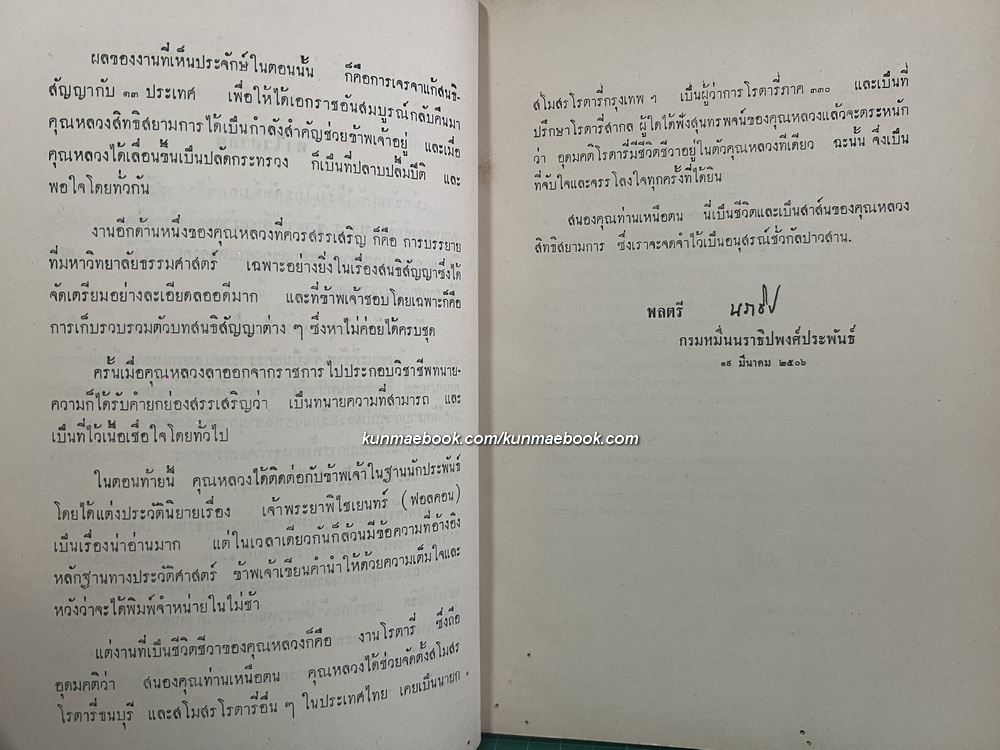 ผลของงานที่เห็นประจักษ์ในตอนนั้น ก็คือการเจรจาแก้สนธิ-
สัญญากับ ๑๓ ประเทศ เพื่อให้ได้เอกราชอันสมบูรณ์กลับคืนมา
คุณหลวงสิทธิสยามการได้เป็นกำลังสำคัญช่วยข้าพเจ้าอยู่ และเมื่อ
คุณหลวงได้เลื่อนขึ้นเป็นปลัดกระทรวง ก็เป็นที่ปลาบปลื้มปีติ และ
พอใจโดยทั่วกัน
งานอีกด้านหนึ่งของคุณหลวงที่ควรสรรเสริญ ก็คือ การบรรยาย
ที่มหาวิทยาลัยธรรมศาสตร์ เฉพาะอย่างยิ่งในเรื่องสนธิสัญญาซึ่งได้
จัดเตรียมอย่างละเอียดลออดีมาก และที่ข้าพเจ้าชอบโดยเฉพาะก็คือ
การเก็บรวบรวมตัวบทสนธิสัญญาต่าง ๆ ซึ่งหาไม่ค่อยได้ครบชุด
ครั้นเมื่อคุณหลวงลาออกจากราชการไปประกอบวิชาชีพทนาย-
ความก็ได้รับคำยกย่องสรรเสริญว่า เป็นทนายความที่สามารถ และ
เป็นที่ไว้เนื้อเชื่อใจโดยทั่วไป
ในตอนท้ายนี้ คุณหลวงได้ติดต่อกับข้าพเจ้าในฐานนักประพันธ์
โดยได้แต่งประวัตินิยายเรื่อง เจ้าพระยาพิไชเยนทร์ (ฟอลคอน)
เป็นเรื่องน่าอ่านมาก แต่ในเวลาเดียวกันก็ล้วนมีข้อความที่อ้างอิง
หลักฐานทางประวัติศาสตร์ ข้าพเจ้าเขียนคำนำให้ด้วยความเต็มใจและ
หวังว่าจะได้พิมพ์จำหน่ายในไม่ช้า
แต่งานที่เป็นชีวิตชีวาของคุณหลวงก็คือ งานโรตารี่ ซึ่งถือ
อุดมคติว่า สนองคุณท่านเหนือตน คุณหลวงได้ช่วยจัดตั้งสโมสร
โรตารี่ธนบุรี และสโมสรโรตารี่อื่น ๆ ในประเทศไทย เคยเป็นนายก
สโมสรโรตารี่กรุงเทพ ฯ เป็นผู้ว่าการโรตารี่ภาค ๓๓๐ และเป็นที่
ปรึกษาโรตารี่สากล ผู้ใดได้ฟังสุนทรพจน์ของคุณหลวงแล้วจะตระหนัก
ว่า อุดมคติโรตารี่มีชีวิตชีวาอยู่ในตัวคุณหลวงทีเดียว ฉะนั้น จึงเป็น
ที่จับใจและจรรโลงใจทุกครั้งที่ได้ยิน
สนองคุณท่านเหนือตน นี่เป็นชีวิตและเป็นสาส์นของคุณหลวง
สิทธิสยามการ ซึ่งเราจะจดจำไว้เป็นอนุสรณ์ชั่วกัลปาวสาน.
พลตรี นราธิป
กรมหมื่นนราธิปพงศ์ประพันธ์
๑๙ มีนาคม ๒๕๐๖
kunmaebook.com/kunmaebook.com